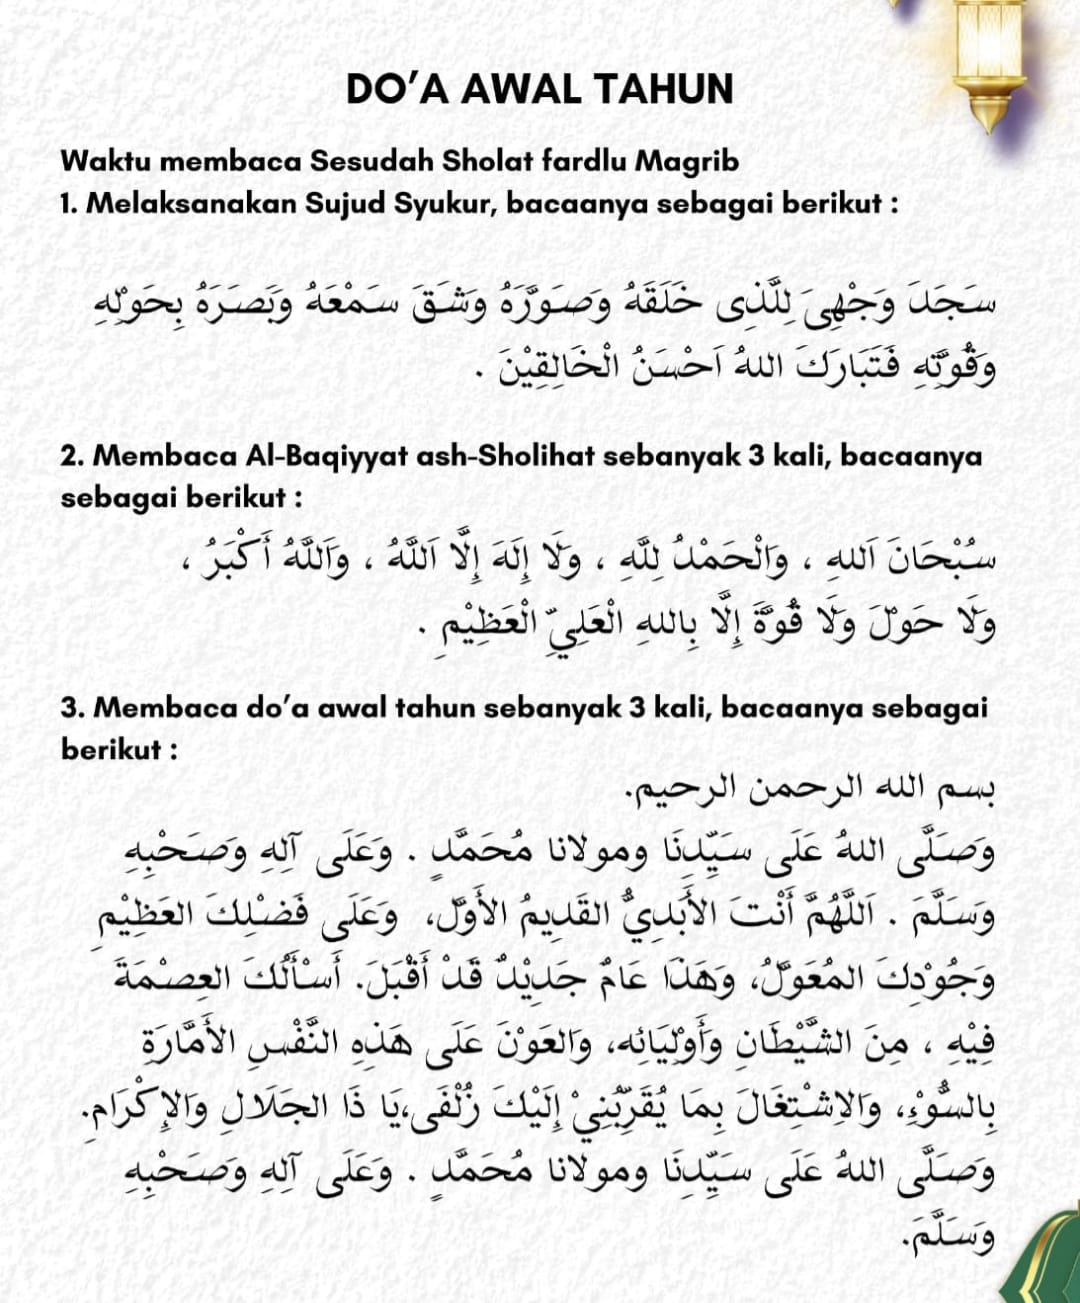 DO'A AWAL TAHUN
Waktu membaca Sesudah Sholat fardlu Magrib
1. Melaksanakan Sujud Syukur, bacaanya sebagai berikut :
سَجَدَ وَجْهِيَ لِلَّذِى خَلَقَهُ وَصَوَّرَهُ وَشَقَ سَمْعَهُ وَبَصَرَهُ بِحَوْلِهِ
وَقُوَّتِهِ فَتَبَارَكَ اللهُ اَحْسَنُ الْخَالِقِيْنَ .
2. Membaca Al-Baqiyyat ash-Sholihat sebanyak 3 kali, bacaanya
sebagai berikut :
سُبْحَانَ اَللهِ ، وَالْحَمْدُ لِلَّهِ ، وَلَا إِلَهَ إِلَّا اَللَّهُ ، وَاَللَّهُ أَكْبَرُ ،
وَلَا حَوْلَ وَلَا قُوَّةَ إِلَّا بِاللهِ الْعَلِيِّ الْعَظِيْمِ .
3. Membaca do'a awal tahun sebanyak 3 kali, bacaanya sebagai
berikut :
بسم الله الرحمن الرحيم.
وَصَلَّى اللهُ عَلَى سَيِّدِنَا ومولانا مُحَمَّدٍ . وَعَلَى آلِهِ وَصَحْبِهِ
وَسَلَّمَ . اَللَّهُمَّ أَنْتَ الأَبَدِيُّ القَدِيمُ الأَوَّلُ، وَعَلَى فَضْلِكَ العَظِيْمِ
وَجُوْدِكَ المُعَوَّلُ، وَهَذَا عَامٌ جَدِيْدٌ قَدْ أَقْبَلَ. أَسْأَلُكَ العِصْمَةَ
فِيْهِ ، مِنَ الشَّيْطَانِ وَأَوْلِيَائِه، وَالعَوْنَ عَلَى هَذِهِ النَّفْسِ الأَمَّارَةِ
بِالسُّوْءِ، وَالاِشْتِغَالَ بِمَا يُقَرِّبُنِيْ إِلَيْكَ زُلْفَى،يَا ذَا الجَلَالِ وَالإِكْرَامِ.
وَصَلَّى اللهُ عَلَى سَيِّدِنَا ومولانا مُحَمَّدٍ . وَعَلَى آلِهِ وَصَحْبِهِ
وَسَلَّمَ.